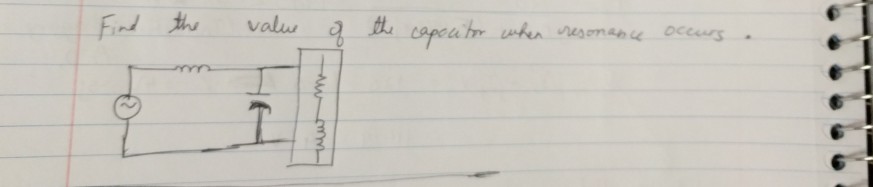 Find the value of the capacitor when resonance occurs .